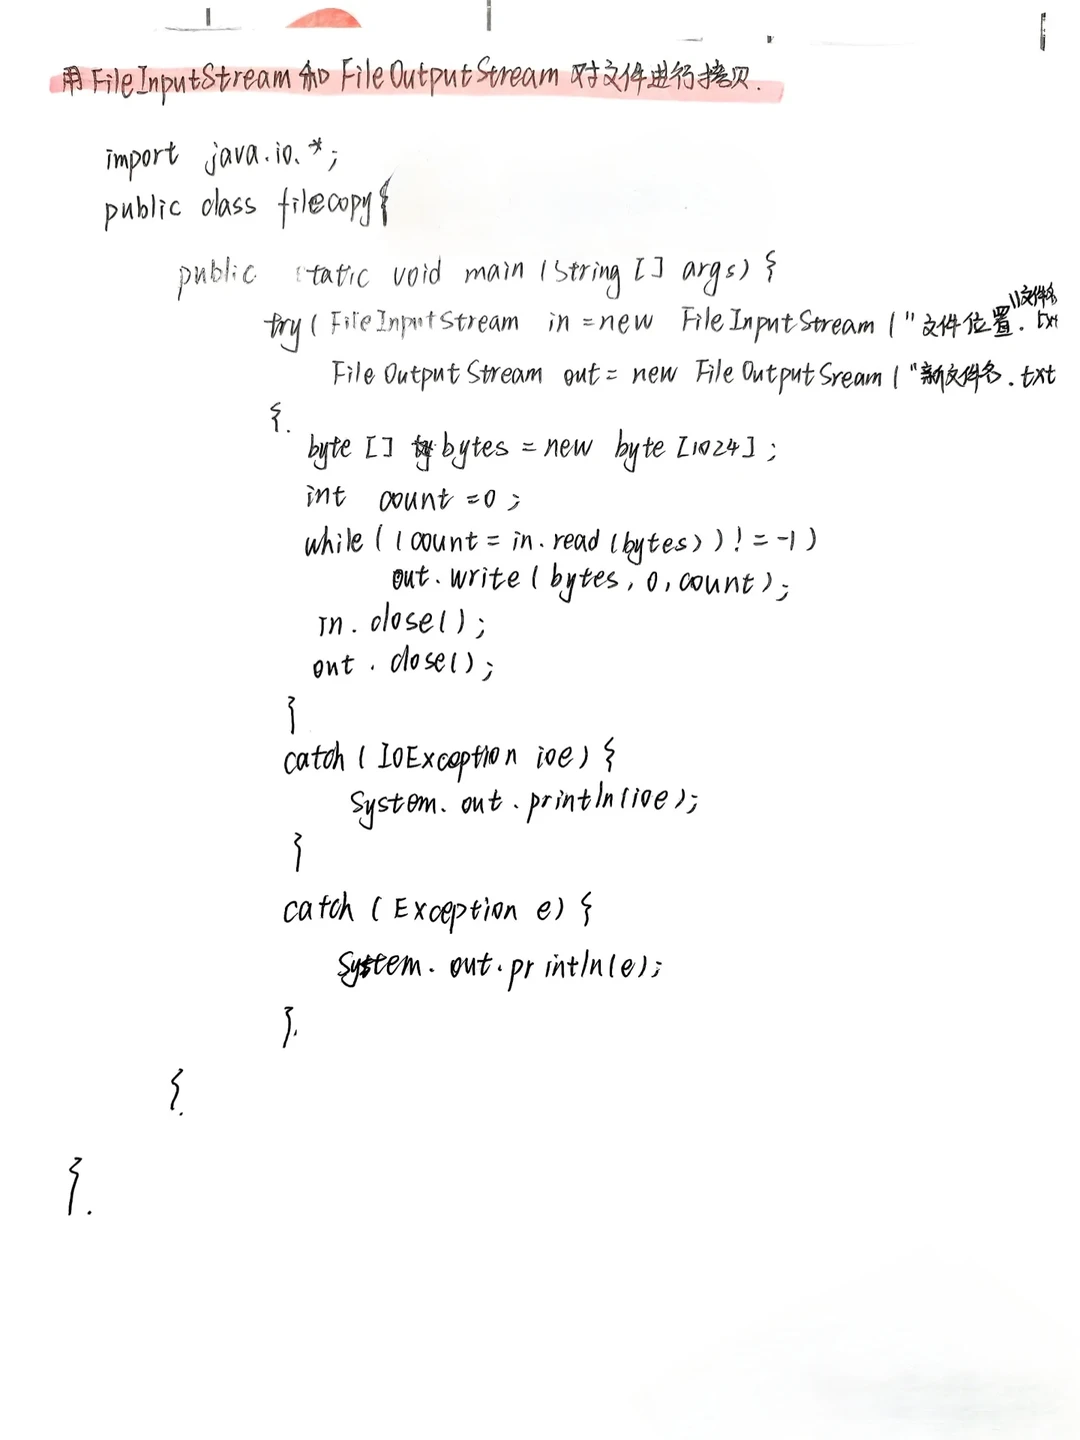 用 FileInputStream 和 FileOutputStream 对文件进行拷贝.
import java.io.*;
public class filecopy{
public static void main (String [] args) {
try( FileInputStream in = new FileInputStream ("文件位置\\文件名.txt
FileOutputStream out = new FileOutputSream ("新文件名.txt
{.
byte [] bytes = new byte [1024];
int count = 0;
while ((count = in.read(bytes)) != -1)
out.write (bytes, 0, count);
in.close();
out.close();
}
catch (IOException ioe) {
System.out.println(ioe);
}
catch (Exception e) {
System.out.println(e);
}.
{.
}.